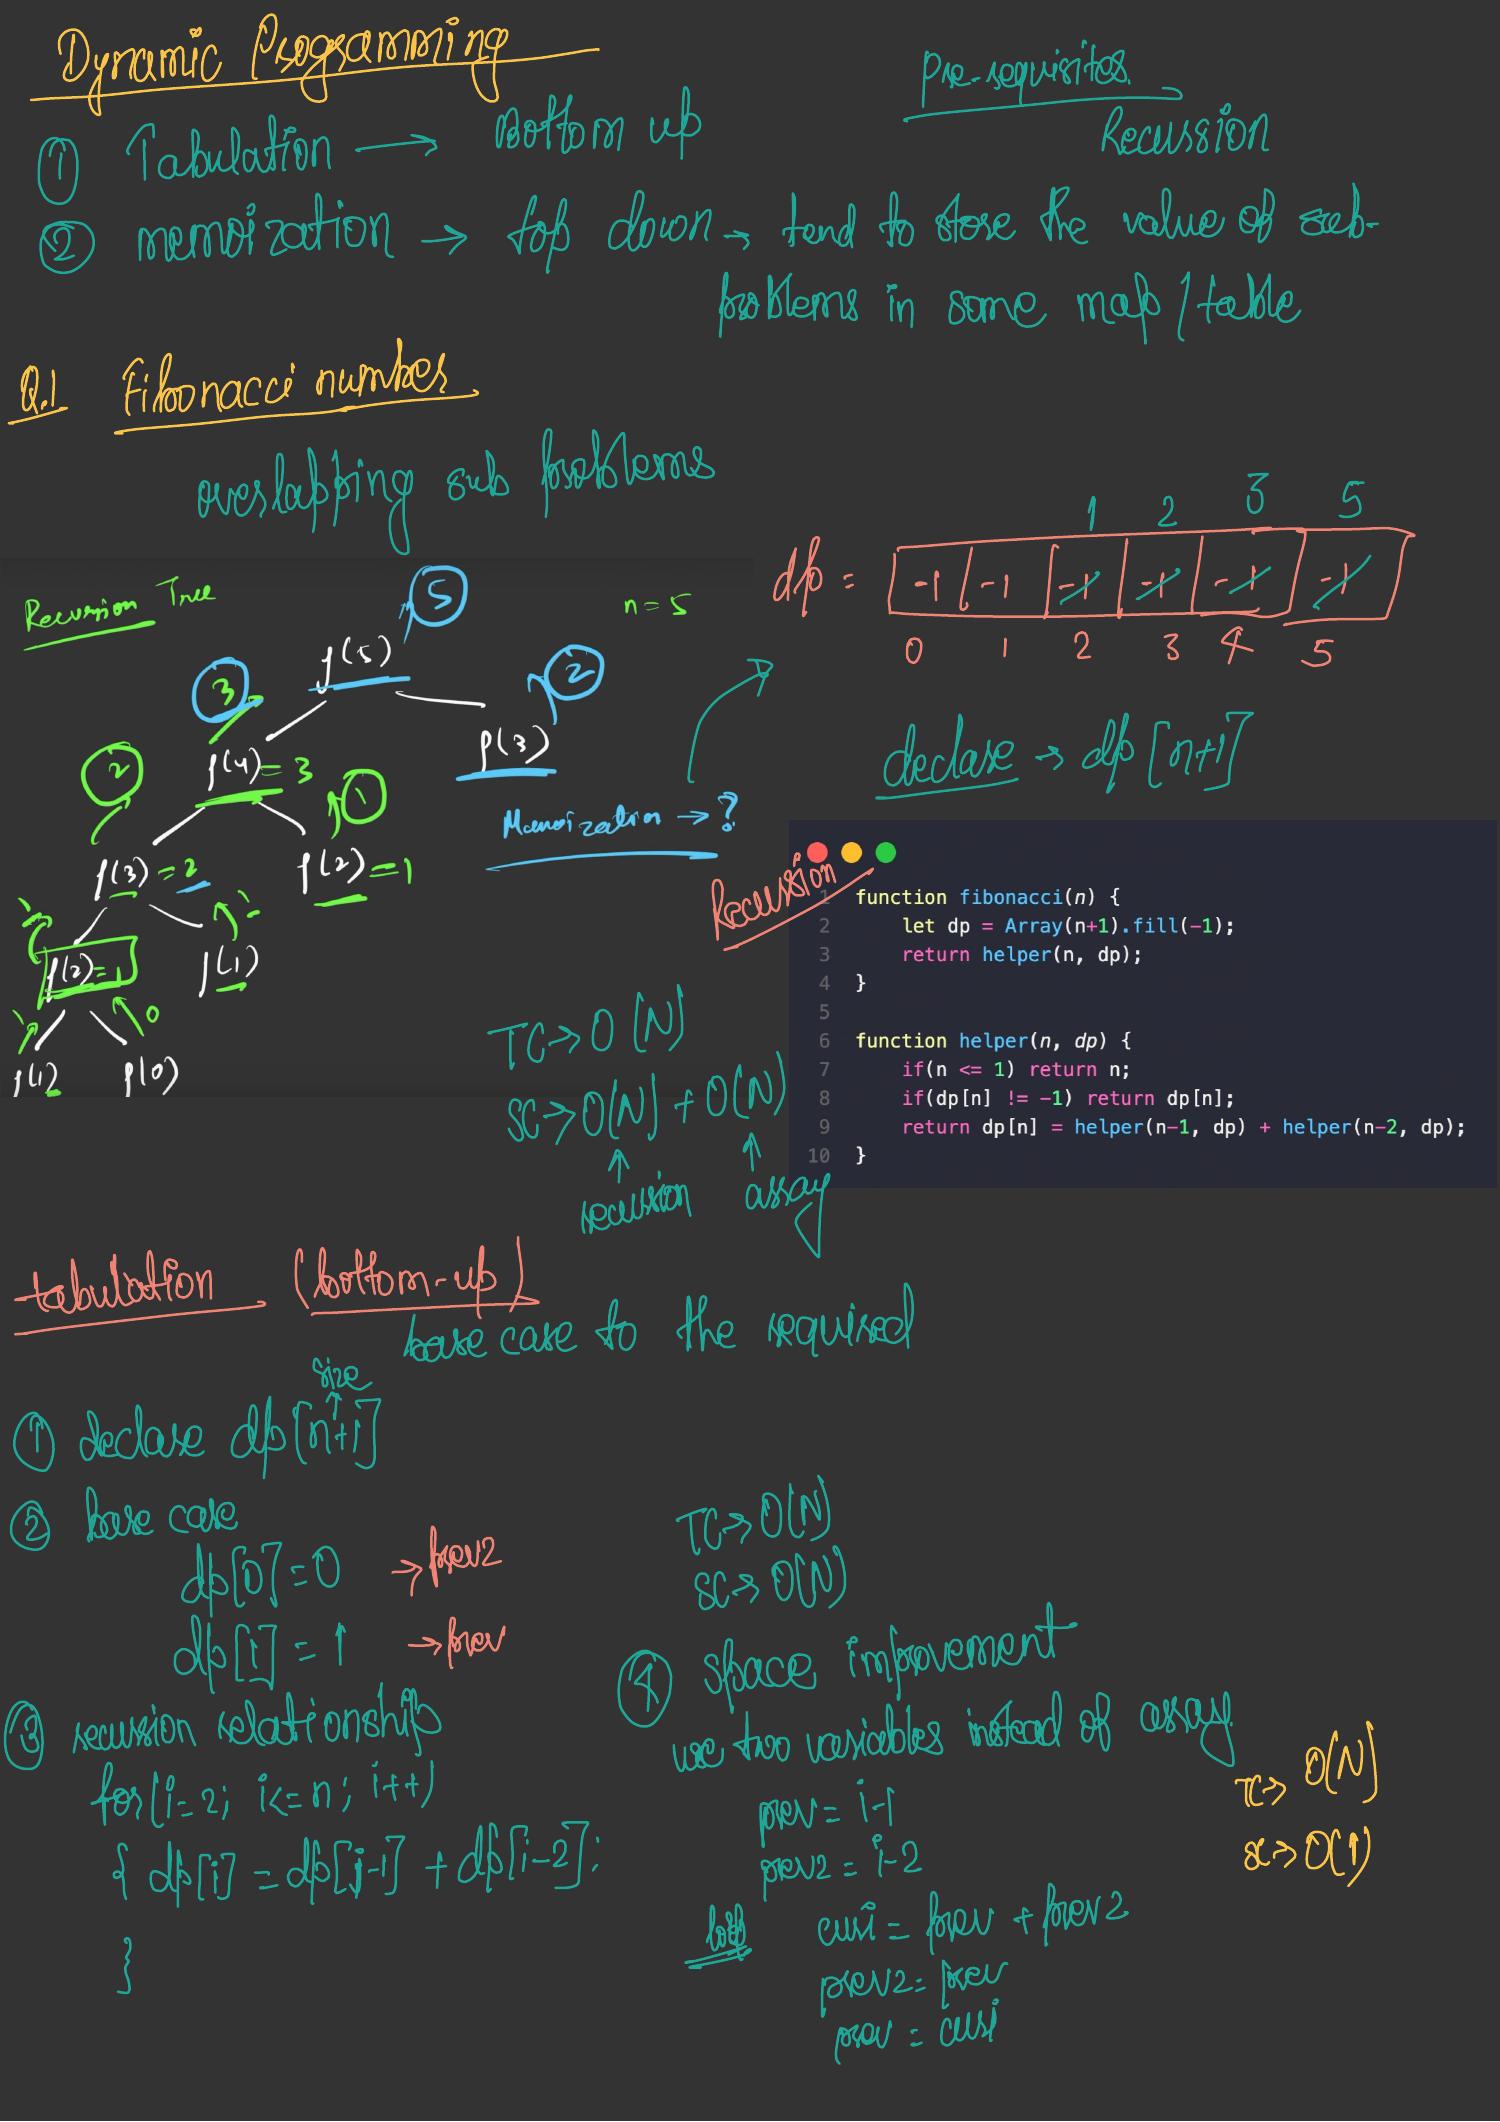 Dynamic Programming
Pre-requisites
Recursion
① Tabulation → Bottom up
② memoization → top down → tend to store the value of sub-
problems in some map / table
Q.1 Fibonacci number
overlapping sub problems
1 2 3 5
dp = -1 -1 -1 -1 -1 -1
0 1 2 3 4 5
declare → dp [n+1]
Recursion Tree
n = 5
f(5) 5
3 2
f(4) = 3 f(3)
2 1
f(3) = 2 f(2) = 1
1 1
f(2) = 1 f(1)
1 0
f(1) f(0)
Memoization → ?
Recursion
1 function fibonacci(n) {
2 let dp = Array(n+1).fill(-1);
3 return helper(n, dp);
4 }
5
6 function helper(n, dp) {
7 if(n <= 1) return n;
8 if(dp[n] != -1) return dp[n];
9 return dp[n] = helper(n-1, dp) + helper(n-2, dp);
10 }
TC → O(N)
SC → O(N) + O(N)
↑ ↑
recursion array
tabulation (bottom-up)
base case to the required
size
① declare dp[n+1]
② base case
dp[0] = 0 → prev2
dp[1] = 1 → prev
③ recursion relationship
for(i=2; i<=n; i++)
{ dp[i] = dp[i-1] + dp[i-2];
}
TC → O(N)
SC → O(N)
④ space improvement
use two variables instead of array.
prev = i-1
prev2 = i-2
loop curi = prev + prev2
prev2 = prev
prev = curi
TC → O(N)
SC → O(1)